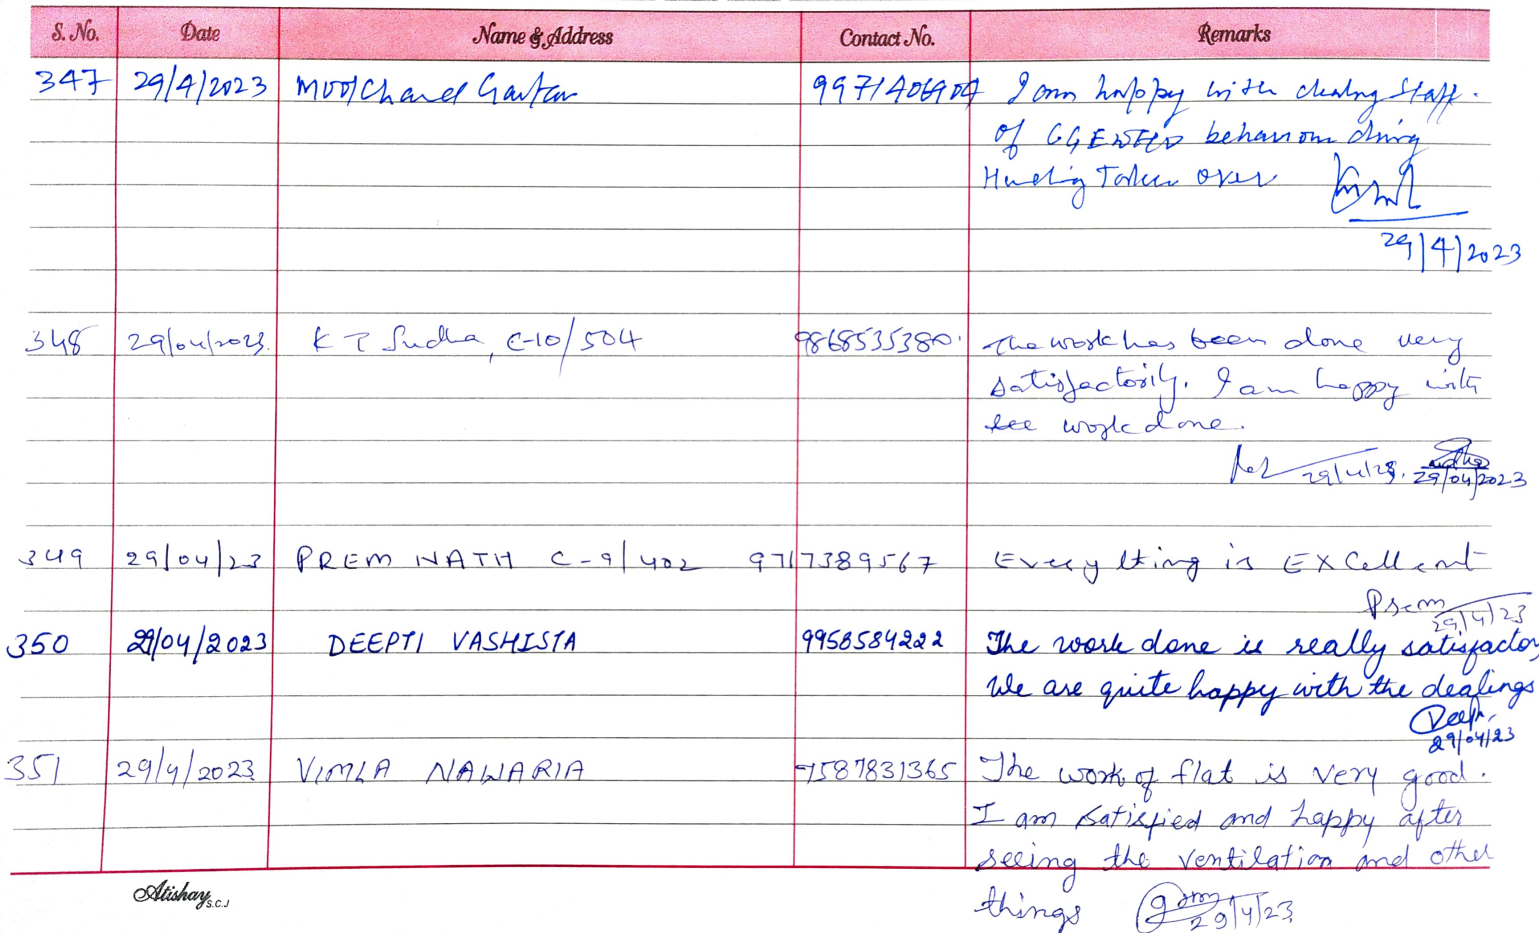 S. No. Date Name & Address Contact No. Remarks
347 29/4/2023 Moolchand 9971406904 I am happy with dealing staff.
of behaviour during
Handing Taken over
29/4/2023
348 29/04/2023 K T Sudha, C-10/504 9868535380. The work has been done very
satisfactorily. I am happy with
the work done.
29/4/23. Sudha
29/04/2023
349 29/04/23 PREM NATH C-9/402 9717389567 Every thing is EXCellent
Prem
29/4/23
350 29/04/2023 DEEPTI VASHISTA 9958584222 The work done is really satisfactor
We are quite happy with the dealings
Deepti
29/04/23
351 29/4/2023 VIMLA NAWARIA 7587831365 The work of flat is very good.
I am satisfied and happy after
seeing the ventilation and other
things 29/4/23
Atishay S.C.J